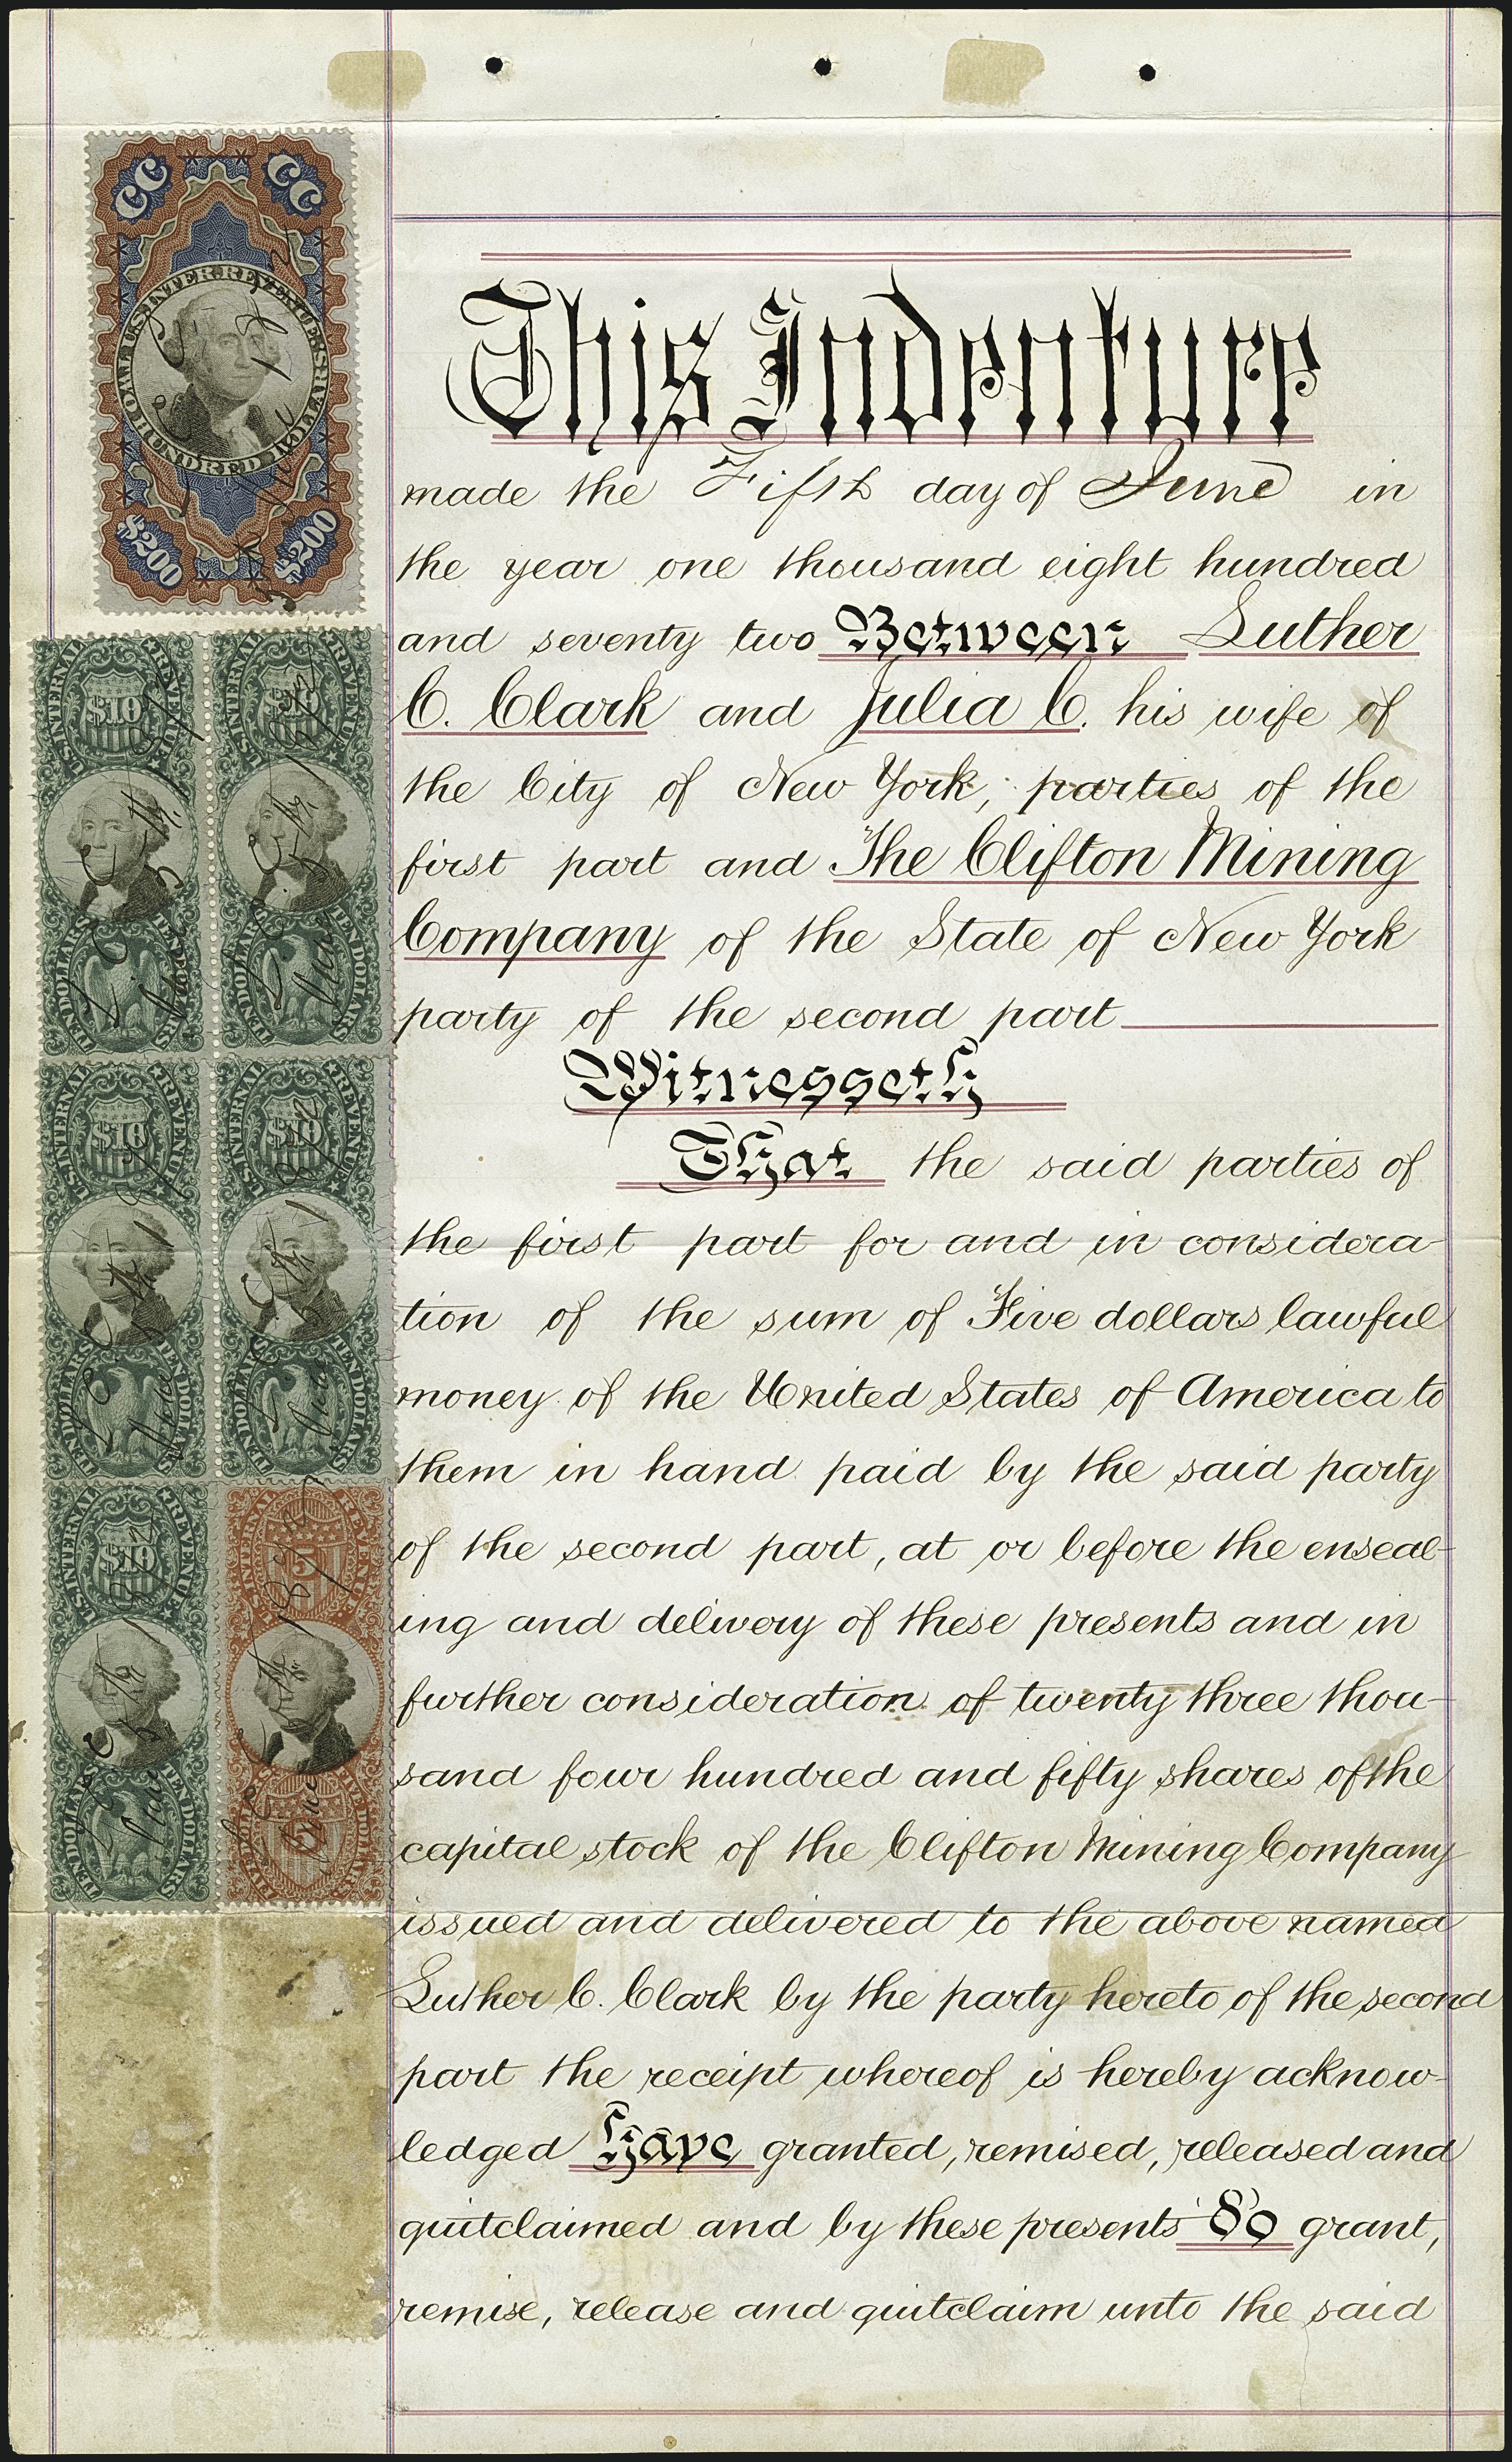 CC CC
U.S. INTER. REVENUE
TWO HUNDRED DOLLARS
$200 $200
U.S. INTERNAL REVENUE
$10
TEN DOLLARS TEN DOLLARS
U.S. INTERNAL REVENUE
$10
TEN DOLLARS TEN DOLLARS
U.S. INTERNAL REVENUE
$10
TEN DOLLARS TEN DOLLARS
U.S. INTERNAL REVENUE
$10
TEN DOLLARS TEN DOLLARS
U.S. INTERNAL REVENUE
$10
TEN DOLLARS TEN DOLLARS
U.S. INTERNAL REVENUE
$5
FIVE DOLLARS FIVE DOLLARS
This Indenture
made the Fifth day of June in
the year one thousand eight hundred
and seventy two Between Luther
C. Clark and Julia C. his wife of
the City of New York, parties of the
first part and The Clifton Mining
Company of the State of New York
party of the second part
Witnesseth
That the said parties of
the first part for and in considera-
tion of the sum of Five dollars lawful
money of the United States of America to
them in hand paid by the said party
of the second part, at or before the enseal-
ing and delivery of these presents and in
further consideration of twenty three thou-
sand four hundred and fifty shares of the
capital stock of the Clifton Mining Company
issued and delivered to the above named
Luther C. Clark by the party hereto of the second
part the receipt whereof is hereby acknow-
ledged Have granted, remised, released and
quitclaimed and by these presents Do grant,
remise, release and quitclaim unto the said